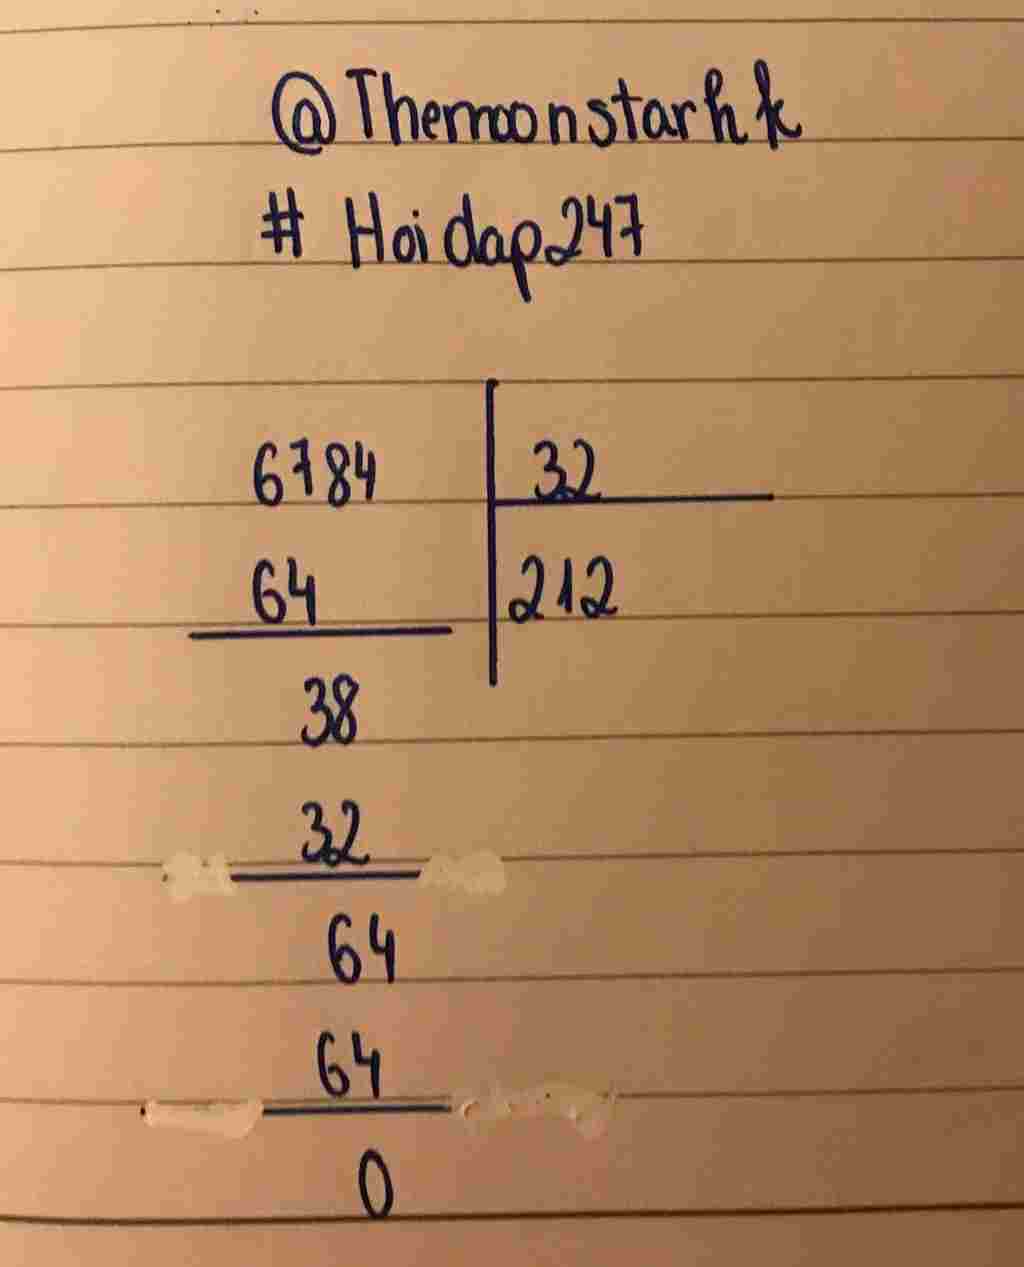 @Themoonstarhk
# Hoidap247
6784 32
64 212
38
32
64
64
0